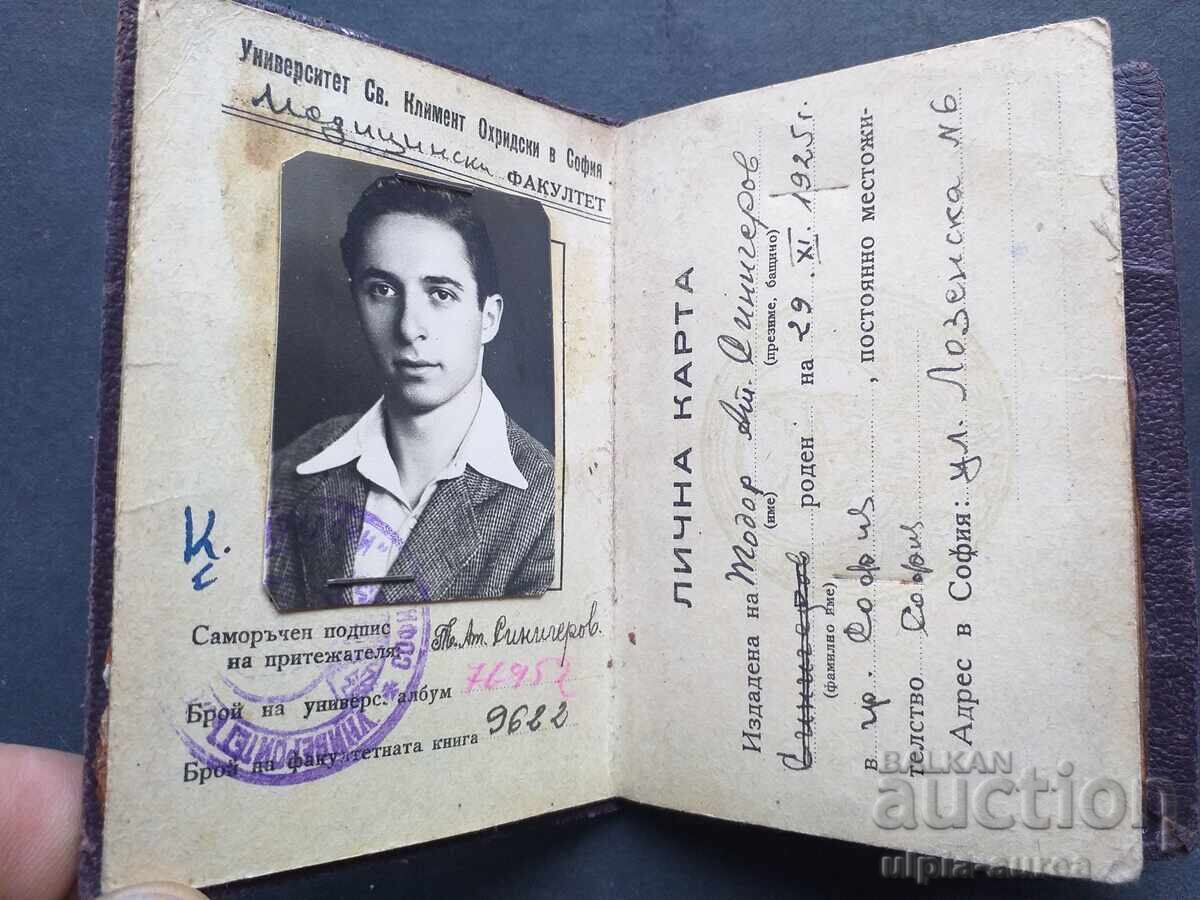 Университет Св. Климент Охридски в София
Медицински ФАКУЛТЕТ
К.
с
Саморъчен подпис
на притежателя: Т. Ат. Синигеров.
Брой на универс. албум 76952
Брой на факултетната книга 9622
УНИВЕРСИТЕТ
СОФИ
ЛИЧНА КАРТА
Издадена на Тодор Ат. Синигеров
(име) (презиме, бащино)
Синигеров роден на 29. XI. 1925 г.
(фамилно име)
в гр. София, постоянно местожи-
телство София
Адрес в София: ул. Лозенска № 6
BALKAN
auction
ulpia-aurea